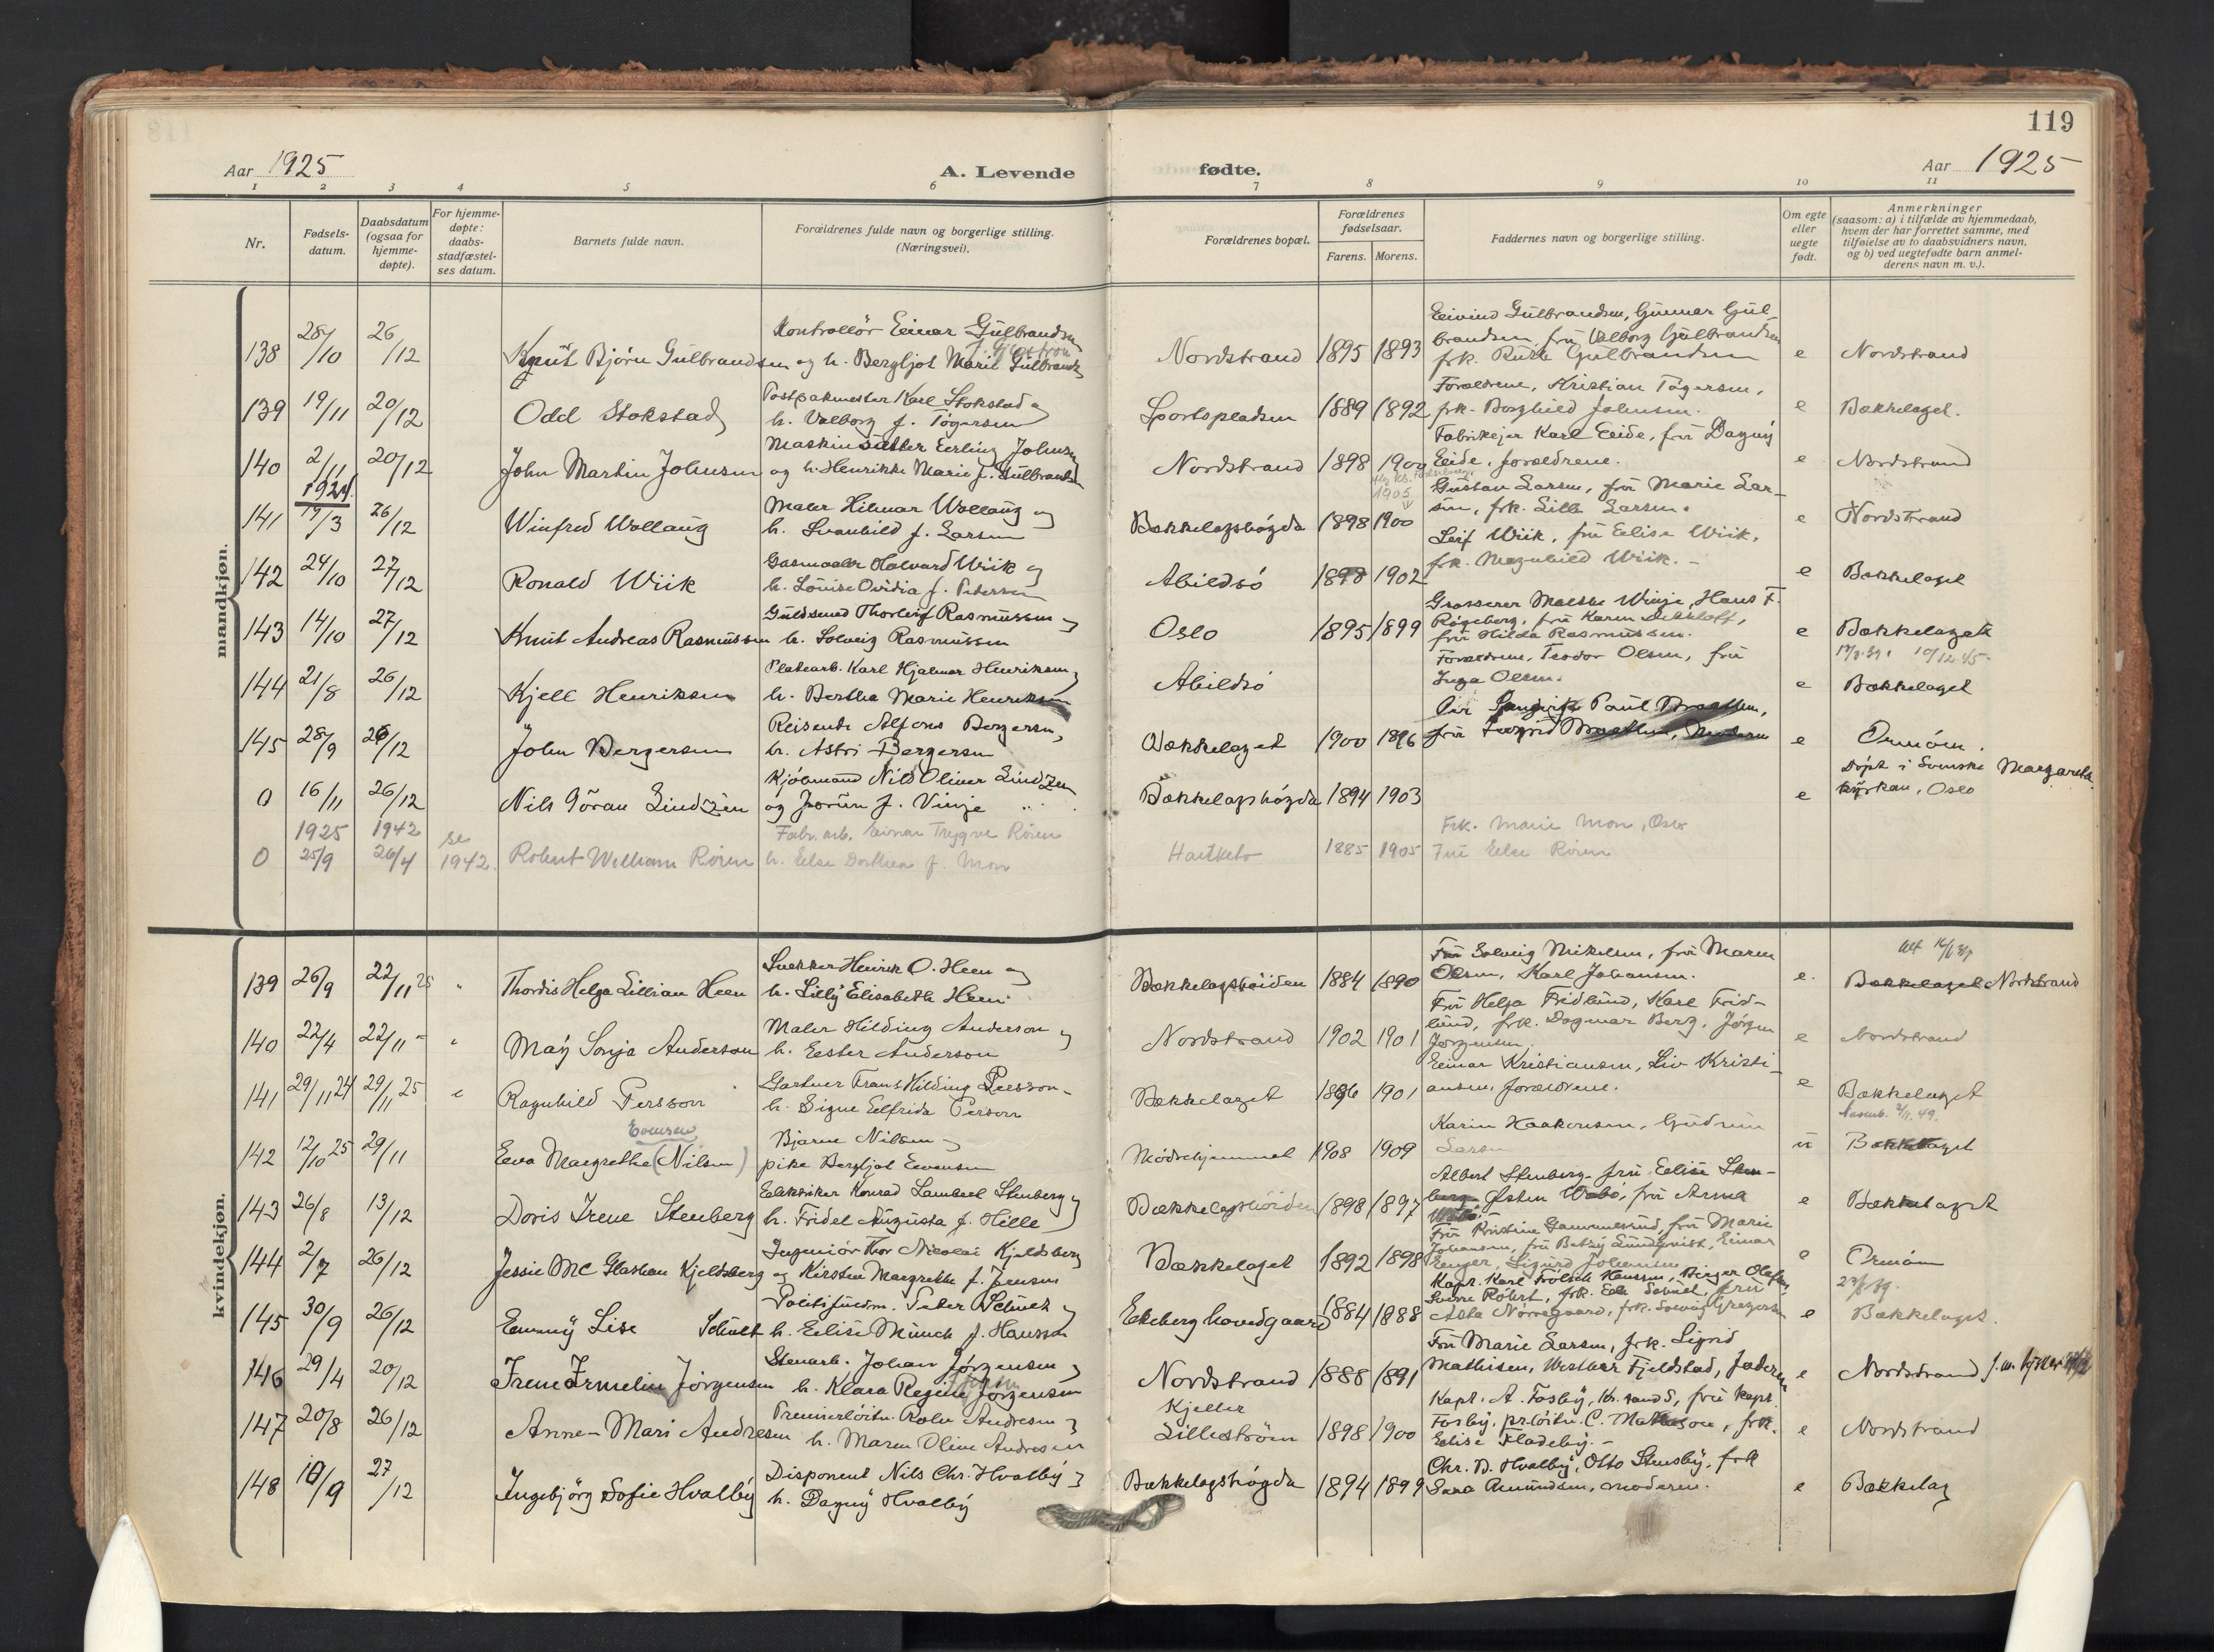 119
Aar 1925
A. Levende
fødte.
Aar 1925
1 2 3 4 5 6 7 8 9 10 11
Nr.
Fødsels-
datum.
Daabsdatum
(ogsaa for
hjemme-
døpte).
For hjemme-
døpte:
daabs-
stadfæstel-
ses datum.
Barnets fulde navn.
Forældrenes fulde navn og borgerlige stilling.
(Næringsvei).
Forældrenes bopæl.
Forældrenes
fødselsaar.
Farens. Morens.
Faddernes navn og borgerlige stilling.
Om egte
eller
uegte
født.
Anmerkninger
(saasom: a) i tilfælde av hjemmedaab,
hvem der har forrettet samme, med
tilføielse av to daabsvidners navn,
og b) ved uegtefødte barn anmel-
derens navn m. v.).
mandkjøn.
138 28/10 26/12 Knut Bjørn Gulbrandsen
Kontrollör Einar Gulbrandsen
og h. Bergljot Marie Gulbrands
Nordstrand 1895 1893
Eivind Gulbrandsen, Gunnar Gul-
brandsen, fru Valborg Gulbrandsen
frk. Ruth Gulbrandsen
e Nordstrand
139 19/11 20/12 Odd Stokstad
Postpakmester Karl Stokstad og
h. Valborg f. Tögersen
Sportspladsen 1889 1892
Forældrene, Kristian Tögersen,
frk. Borghild Johnsen.
e Bækkelaget.
140 2/11 20/12 John Martin Johnsen
Maskinsætter Erling Johnsen
og h. Henrikke Marie f. Gulbrands
Nordstrand 1898 1900
Fabrikejer Karl Eide, fru Dagny
Eide, forældrene.
e Nordstrand
1924
141 17/3 26/12 Winfred Wollaug
Maler Hilmar Wollaug og
h. Svanhild f. Larsen
Bækkelagshögda 1898 1900
1905
Gustav Larsen, fru Marie Lar-
sen, frk. Lilli Larsen.
e Nordstrand
142 24/10 27/12 Ronald Wiik
Gasmaaler Halvard Wiik og
h. Louise Ovidia f. Petersen
Abildsö 1898 1902
Leif Wiik, fru Elise Wiik,
frk. Magnhild Wiik.
e Bækkelaget
143 14/10 27/12 Knut Andreas Rasmussen
Guldsmed Thorleif Rasmussen og
h. Solveig Rasmussen
Oslo 1895 1899
Grosserer Vinje, Hans F.
Rögeberg, fru Karen
fru Hilda Rasmussen.
e Bækkelaget
144 21/8 26/12 Kjell Henriksen
Platearb. Karl Hjalmar Henriksen og
h. Bertha Marie Henriksen
Abildsö
Forældrene, Teodor Olsen, fru
Inga Olsen.
e Bækkelaget
145 28/9 26/12 John Bergersen
Reisende Alfons Bergersen,
h. Astri Bergersen
Bækkelaget 1900 1896
Per Paul Braathen,
fru Ingrid Braathen, Moderen
e Ormöen.
0 16/11 26/12 Nils Göran Lindzén
Kjöbmand Nils Oliver Lindzen
og Jorun f. Vinje
Bækkelagshögda 1894 1903
e Döpt i Svenska Margareta
kyrkan, Oslo
0 1925 25/9 1942 26/4 se 1942. Robert William Rören
Fabr. arb. Einar Trygve Rören
h. Else Dorthea f. Mon
Hauketo 1885 1905
Frk. Marie Mon, Oslo
Fru Else Rören
kvindekjøn.
139 26/9 22/11 25 Thordis Helga Lillian Heen
Snekker Henrik O. Heen og
h. Lilly Elisabeth Heen
Bækkelagshöiden 1884 1890
Fru Solveig Mikelsen, fru Maren
Olsen, Karl Johansen.
e. Bækkelaget Nordstrand
140 22/4 22/11 May Sonja Anderson
Maler Hilding Anderson og
h. Ester Anderson
Nordstrand 1902 1901
Fru Helga Fridlund, Karl Frid-
lund, frk. Dagmar Berg, Jörgen
Jörgensen.
e Nordstrand
141 29/11 24 29/11 25 Ragnhild Persson
Gartner Frans Hilding Persson
h. Signe Elfrida Person
Bækkelaget 1896 1901
Einar Kristiansen, Liv Kristi-
ansen, forældrene.
e Bækkelaget
142 12/10 25 29/11 Eva Margrethe (Nilsen)
Evensen
Bjarne Nilsen og
pike Bergljot Evensen
Mödrehjemmet 1908 1909
Karin Haakonsen, Gudrun
Larsen
u Bækkelaget
143 26/8 13/12 Doris Irene Stenberg
Elektriker Konrad Lambert Stenberg og
h. Fridel Augusta f. Hille
Bækkelagshöiden 1898 1897
Albert Stenberg, fru Elise Sten-
berg, Østen Webo, fru Anna
Webo.
e Bækkelaget
144 2/7 26/12 Jessie Mc Glashan Kjeldsberg
Ingeniör Thor Nicolai Kjeldsberg
og Kirsten Margrethe f. Jensen
Bækkelaget 1892 1898
Fru Kristine Gammelsrud, fru Marie
Johansen, fru Betsy Lundqvist, Einar
Enger, Sigurd Johansen
e Ormöen
145 30/9 26/12 Emmy Lise Schult
Politifuldm. Peter Schult og
h. Elise Munch f. Hansson
Ekeberg hovedgaard 1884 1888
Kapt. Karl Frölich Hanssen, Birger Olafsen,
Sverre Röhrt, frk. Schult, fru
Asta Nörregaard, frk. Solveig Gregersen
e Bækkelaget.
146 29/4 20/12 Irene Irmelin Jörgensen
Stenarb. Johan Jörgensen og
h. Klara Regine Jörgensen
Nordstrand 1888 1891
Fru Marie Larsen, frk. Sigrid
Mathisen, Westbar Fjeldstad, faderen
e Nordstrand
147 20/8 26/12 Anne-Mari Andresen
Premierlöitn. Rolv Andresen og
h. Maren Oline Andresen
Kjeller
Lilleström 1898 1900
Kapt. A. Fosby, Kr.sand S, fru kapt.
Fosby, pr.löitn. C. Mathison, frk.
Elise Fladeby.
e Nordstrand
148 10/9 27/12 Ingebjörg Sofie Hvalby
Disponent Nils Chr. Hvalby og
h. Dagny Hvalby
Bækkelagshögda 1894 1899
Chr. B. Hvalby, Otto Stensby, frk
Sara Amundsen, moderen.
e Bækkelag